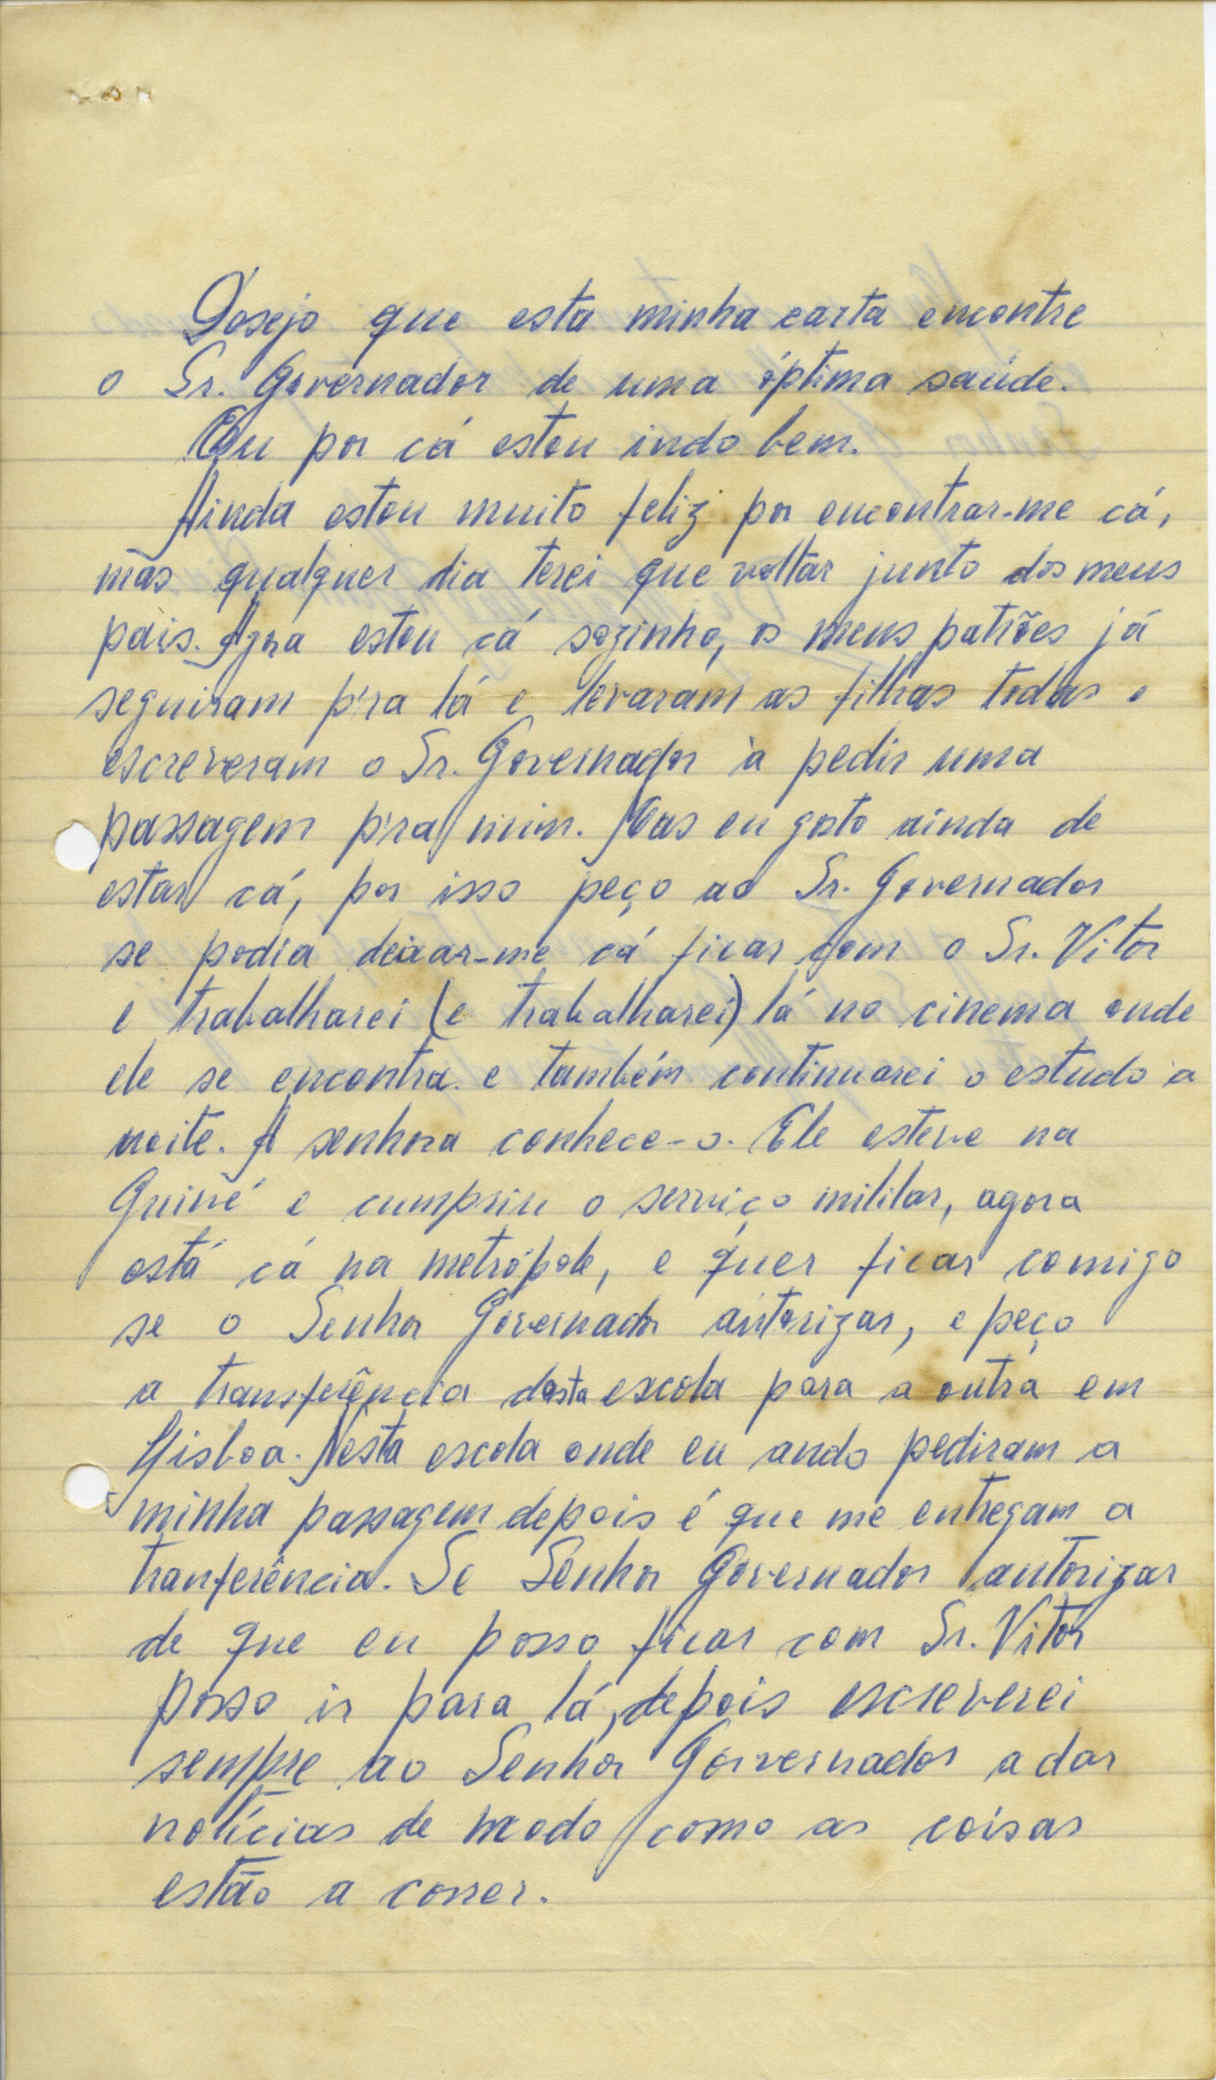 Desejo que esta minha carta encontre
o Sr. Governador de uma óptima saúde.
Eu por cá estou indo bem.
Ainda estou muito feliz por encontrar-me cá,
mas qualquer dia terei que voltar junto dos meus
pais. Agora estou cá sozinho, os meus patrões já
seguiram p'ra lá e levaram as filhas todas e
escreveram o Sr. Governador a pedir uma
passagem p'ra mim. Mas eu gosto ainda de
estar cá, por isso peço ao Sr. Governador
se podia deixar-me cá ficar com o Sr. Vitor
e trabalharei (e trabalharei) lá no cinema onde
ele se encontra e também continuarei o estudo a
noite. A senhora conhece-o. Ele esteve na
Guiné e cumpriu o serviço mililar, agora
está cá na metrópole, e quer ficar comigo
se o Senhor Governador autorizar, e peço
a transferência desta escola para a outra em
Lisboa. Nesta escola onde eu ando pediram a
minha passagem depois é que me entregam a
tranferência. Se Senhor Governador autorizar
de que eu posso ficar com Sr. Vitor
posso ir para lá, depois escreverei
sempre ao Senhor Governador a dar
notícias de modo como as coisas
estão a correr.